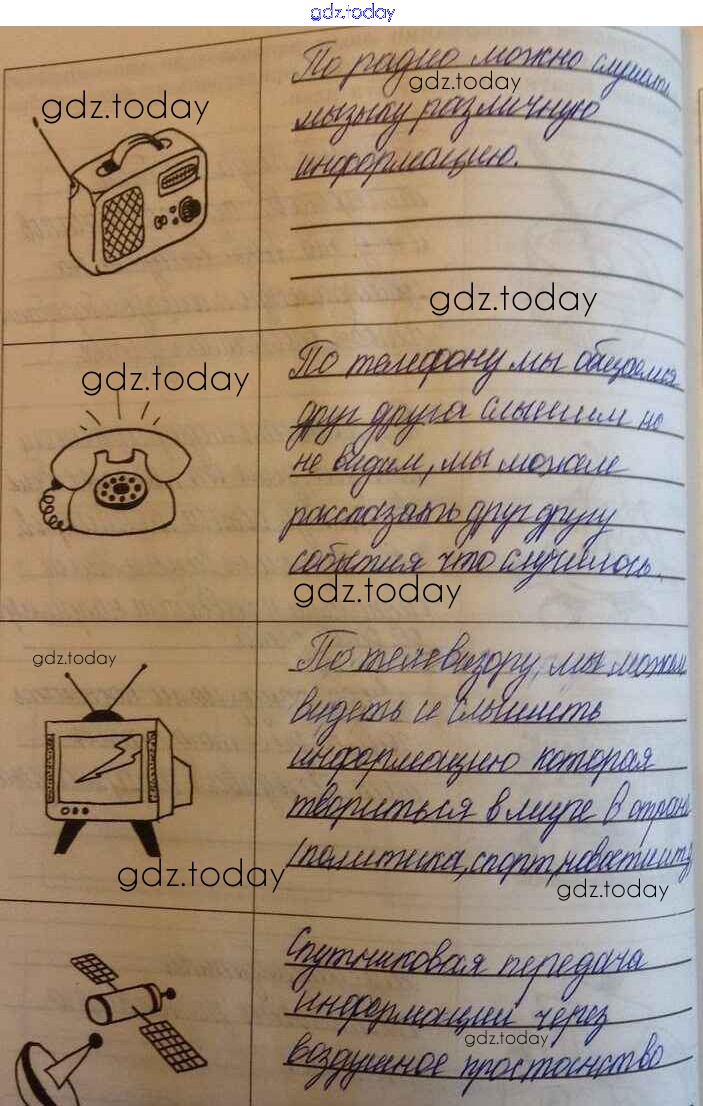 gdz.today
По радио можно слушать
gdz.today
gdz.today
мызыку различную
информацию.
gdz.today
По телефону мы общаемся
gdz.today
друг друга слышим но
не видим, мы можем
рассказать друг другу
события что случилось.
gdz.today
gdz.today
По телевизору, мы можем
видеть и слышить
информацию которая
твориться в мире в стране
(политика, спорт, новости итд
gdz.today
gdz.today
Спутниковая передача
информации через
gdz.today
воздушное простоанство